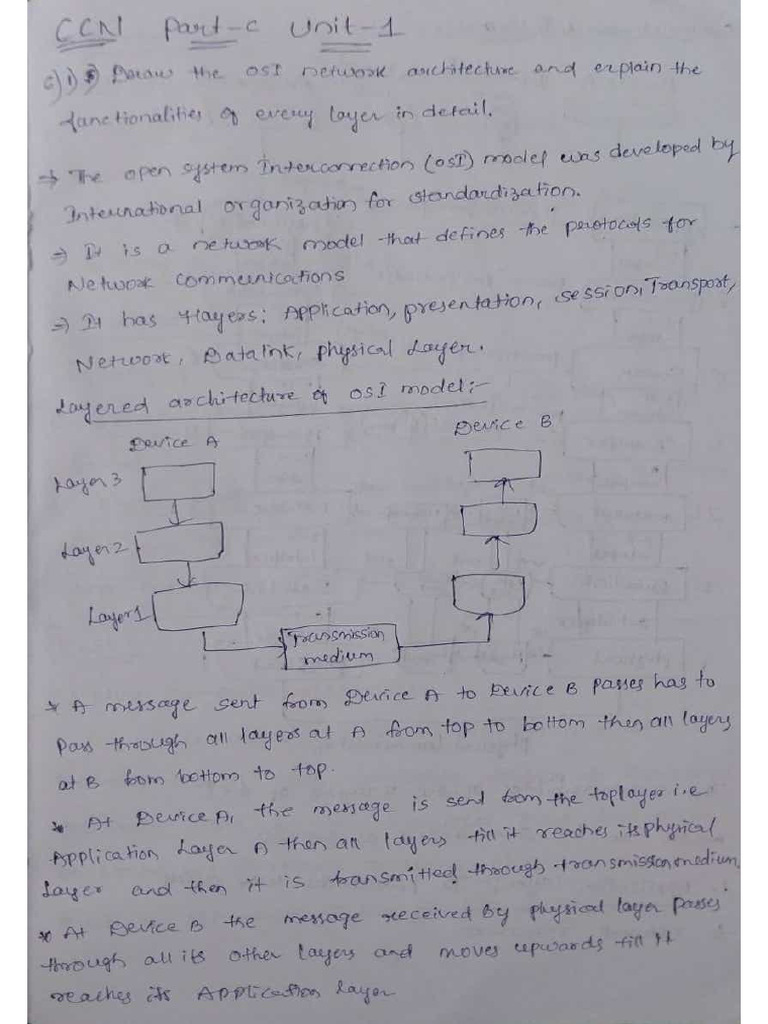 CCN Part-c Unit-1
c) 1) Draw the OSI network architecture and explain the
functionalities of every layer in detail.
→ The open system Interconnection (OSI) model was developed by
International organization for standardization.
⇒ It is a network model that defines the protocols for
Network communications
⇒ It has 7layers: Application, presentation, session, Transport,
Network, Datalink, physical Layer.
Layered architecture of OSI model:-
Device A
Device B
Layer 3
Layer 2
Layer 1
Transmission
medium
* A message sent from Device A to Device B passes has to
pass through all layers at A from top to bottom then all layers
at B from bottom to top.
* At Device A, the message is sent from the toplayer i.e
Application Layer A then all layers till it reaches its physical
layer and then it is transmitted through transmission medium.
* At Device B the message received by physical layer passes
through all its other layers and moves upwards till it
reaches its Application layer